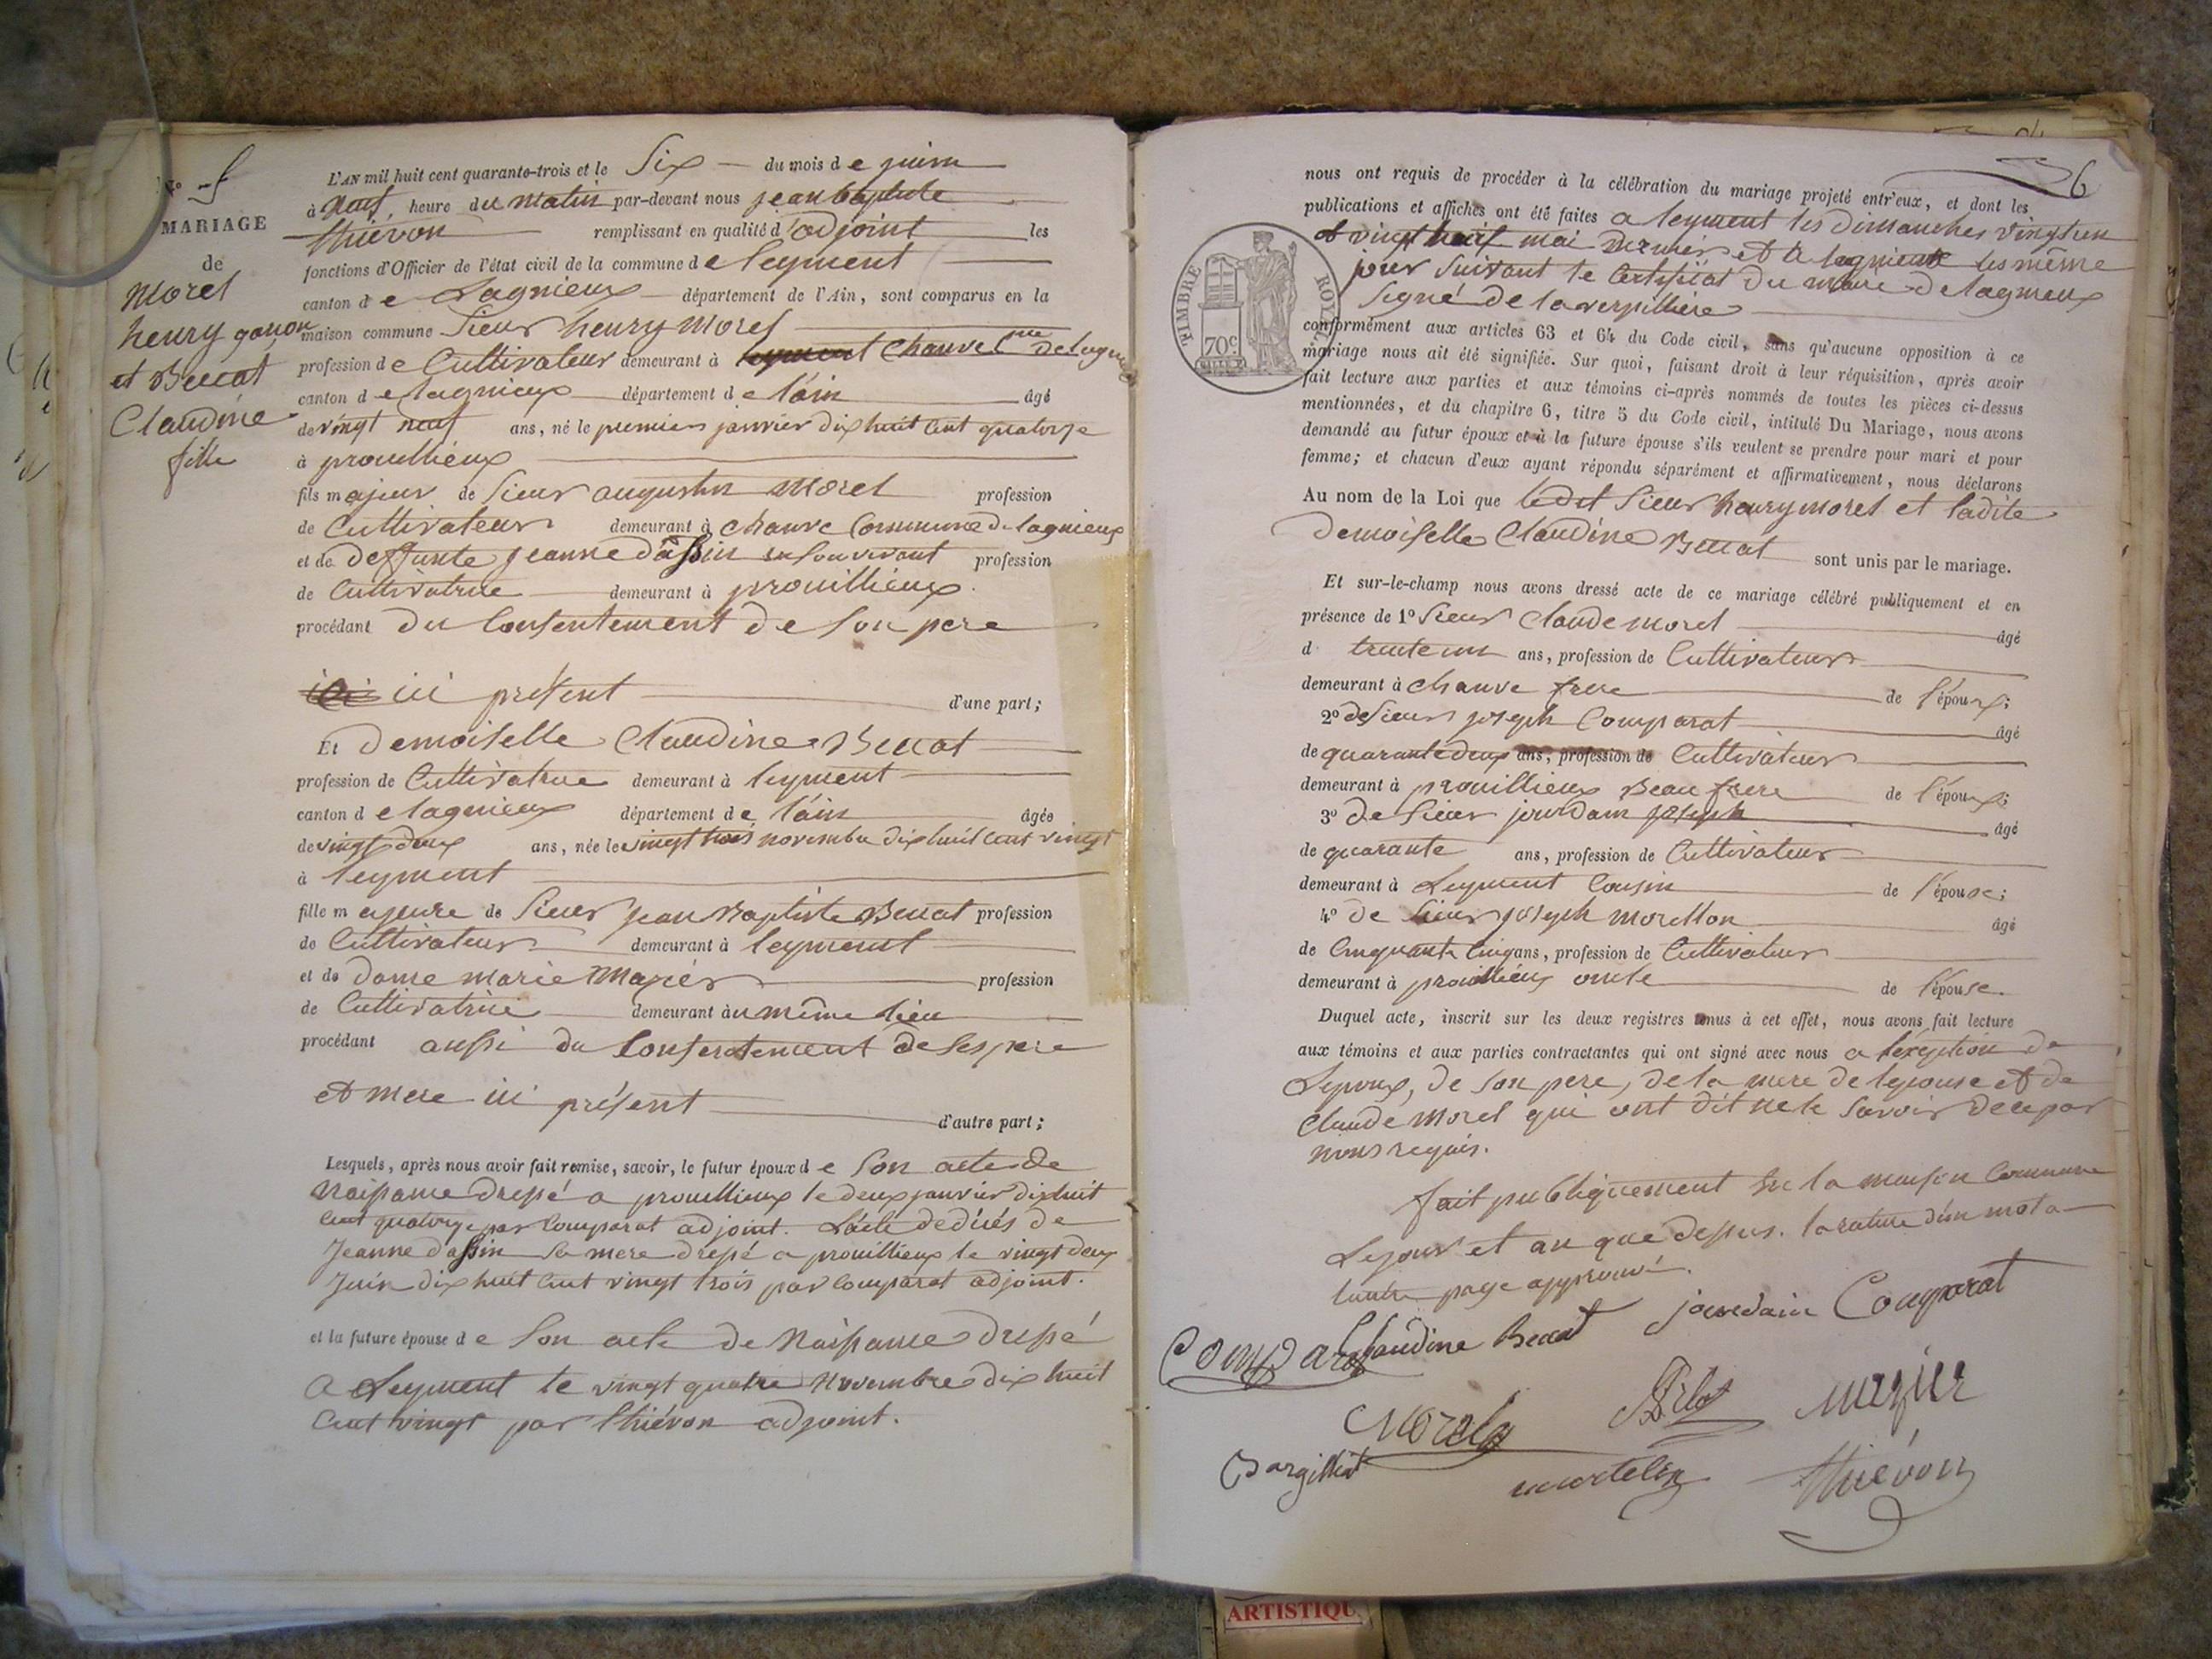 N.o 5
MARIAGE
de
Morel
henry garçon
et Beccat
Claudine
fille
L'AN mil huit cent quarante-trois et le Six du mois de juin
à neuf heure du matin par-devant nous jean baptiste
thiévon remplissant en qualité d'adjoint les
fonctions d'Officier de l'état civil de la commune de leyment
canton de Lagnieux département de l'Ain, sont comparus en la
maison commune Sieur henry Morel
profession de Cultivateur demeurant à leyment Chauve Cne de lagnieux
canton de lagnieux département de l'áin âgé
de vingt neuf ans, né le premier janvier dix huit cent quatorze
à prouillieux
fils majeur de Sieur augustin Morel profession
de Cultivateur demeurant à chauve Commune de lagnieux
et de deffunte jeanne dassin en son vivant profession
de Cultivatrice demeurant à prouillieux
procédant du Consentement de Son pere
ici ici présent d'une part;
Et demoiselle Claudine Beccat
profession de Cultivatrice demeurant à leyment
canton de lagnieux département de l'áin âgée
de vingt deux ans, née le vingt trois novembre dix huit cent vingt
à leyment
fille majeure de Sieur jean Baptiste Beccat profession
de Cultivateur demeurant à leyment
et de dame marie Mazier profession
de Cultivatrice demeurant au même lieu
procédant aussi du Consentement de Ses pere
et mere ici présent d'autre part;
Lesquels, après nous avoir fait remise, savoir, le futur époux de Son acte de
Naissance dressé a prouillieux le deux janvier dix huit
cent quatorze par Comparat adjoint. L'acte de décés de
Jeanne dassin Sa mere dressé a prouillieux le vingt deux
Juin dix huit cent vingt trois par Comparat adjoint.
et la future épouse de Son acte de Naissance dressé
a Leyment le vingt quatre Novembre dix huit
cent vingt par thiévon adjoint.
6
nous ont requis de procéder à la célébration du mariage projeté entr'eux, et dont les
publications et affiches ont été faites a leyment les dimanches vingt un
et vingt huit mai dernier et a lagnieux les même
jour Suivant le Certificat du maire de lagnieux
Signé de la verpilliere
TIMBRE ROYAL
70c
conformément aux articles 63 et 64 du Code civil, sans qu'aucune opposition à ce
mariage nous ait été signifiée. Sur quoi, faisant droit à leur réquisition, après avoir
fait lecture aux parties et aux témoins ci-après nommés de toutes les pièces ci-dessus
mentionnées, et du chapitre 6, titre 5 du Code civil, intitulé Du Mariage, nous avons
demandé au futur époux et à la future épouse s'ils veulent se prendre pour mari et pour
femme; et chacun d'eux ayant répondu séparément et affirmativement, nous déclarons
Au nom de la Loi que ledit Sieur henry morel et ladite
demoiselle Claudine Beccat sont unis par le mariage.
Et sur-le-champ nous avons dressé acte de ce mariage célébré publiquement et en
présence de 1o Sieur Claude morel âgé
d trente un ans, profession de Cultivateur
demeurant à chauve frere de l'époux;
2o de Sieur joseph Comparat âgé
de quarante deux ans, profession de Cultivateur
demeurant à prouillieux Beau frere de l'époux;
3o de Sieur jourdain joseph âgé
de quarante ans, profession de Cultivateur
demeurant à Leyment Cousin de l'épouse;
4o de Sieur joseph morellon âgé
de Cinquante Cinq ans, profession de Cultivateur
demeurant à prouillieux oncle de l'épouse.
Duquel acte, inscrit sur les deux registres tenus à cet effet, nous avons fait lecture
aux témoins et aux parties contractantes qui ont signé avec nous a l'exeption de
Lepoux, de Son pere, de la mere de lepouse et de
Claude Morel qui ont dit ne le Savoir de ce par
nous requis.
fait publiquement En la maison Commune
Lejour et an que dessus. la rature d'un mot a
lautre page approuvé.
Comparat Claudine Becat jourdain Comparat
Morel mazier
Bargilliat martelin thiévon
ARTISTIQU